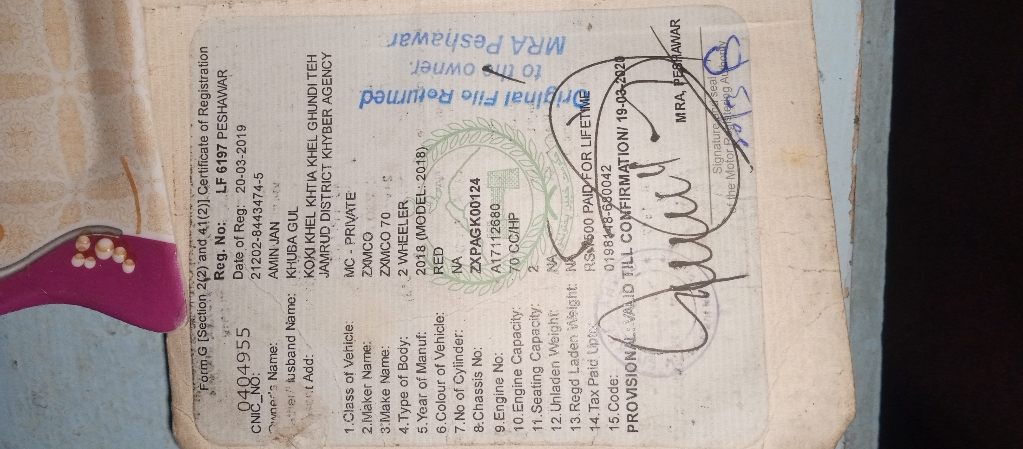 Form G [Section 2(2) and 41(2)] Certificate of Registration
Reg. No: LF 6197 PESHAWAR
0404955 Date of Reg: 20-03-2019
CNIC_NO: 21202-8443474-5
Owner's Name: AMIN JAN
Husband Name: KHUBA GUL
Add: KOKI KHEL KHTIA KHEL GHUNDI TEH
JAMRUD DISTRICT KHYBER AGENCY
1.Class of Vehicle: MC - PRIVATE
2.Maker Name: ZXMCO
3.Make Name: ZXMCO 70
4.Type of Body: 2 WHEELER
5.Year of Manuf: 2018 (MODEL: 2018)
6.Colour of Vehicle: RED
7.No of Cylinder: NA
8.Chassis No: ZXPAGK00124
9.Engine No: A17112680
10.Engine Capacity: 70 CC/HP
11.Seating Capacity: 2
12.Unladen Weight: NA
13.Regd Laden Weight: NA
14.Tax Paid Upto: PAID FOR LIFETIME
15.Code:
PROVISIONAL VALID TILL CONFIRMATION/ 19-03-2020
MRA, PESHAWAR
Signature and seal
of the Motor Registering Authority
Original File Returned
to the owner.
MRA Peshawar